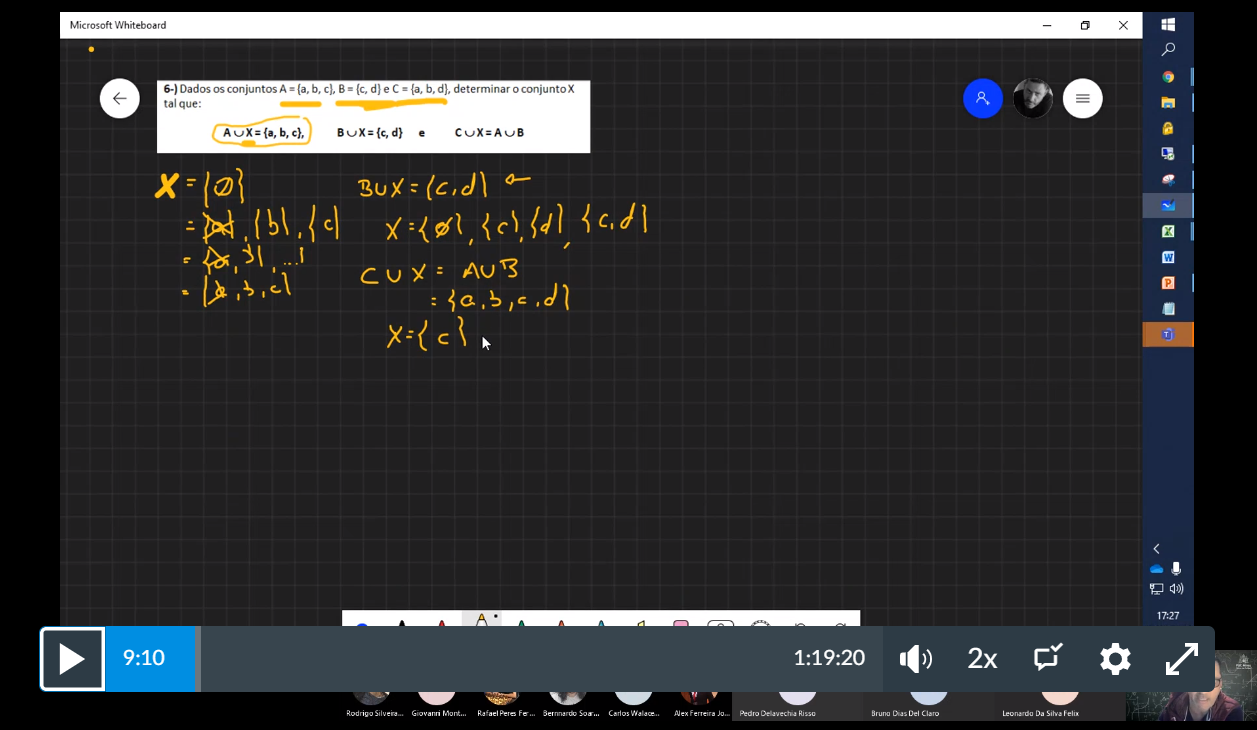 Microsoft Whiteboard
6-) Dados os conjuntos A = {a, b, c}, B = {c, d} e C = {a, b, d}, determinar o conjunto X
tal que:
A ∪ X = {a, b, c}, B ∪ X = {c, d} e C ∪ X = A ∪ B
X = {∅}
= {a}, {b}, {c}
= {a, b}, ...
= {a, b, c}
B∪X = {c,d} ←
X = {∅}, {c}, {d}, {c,d}
C ∪ X = A∪B
= {a,b,c,d}
X = {c}
17:27
9:10
1:19:20
2x
Rodrigo Silveira...
Giovanni Mont...
Rafael Peres Fer...
Bernnardo Soar...
Carlos Walace...
Alex Ferreira Jo...
Pedro Delavechia Risso
Bruno Dias Del Claro
Leonardo Da Silva Felix